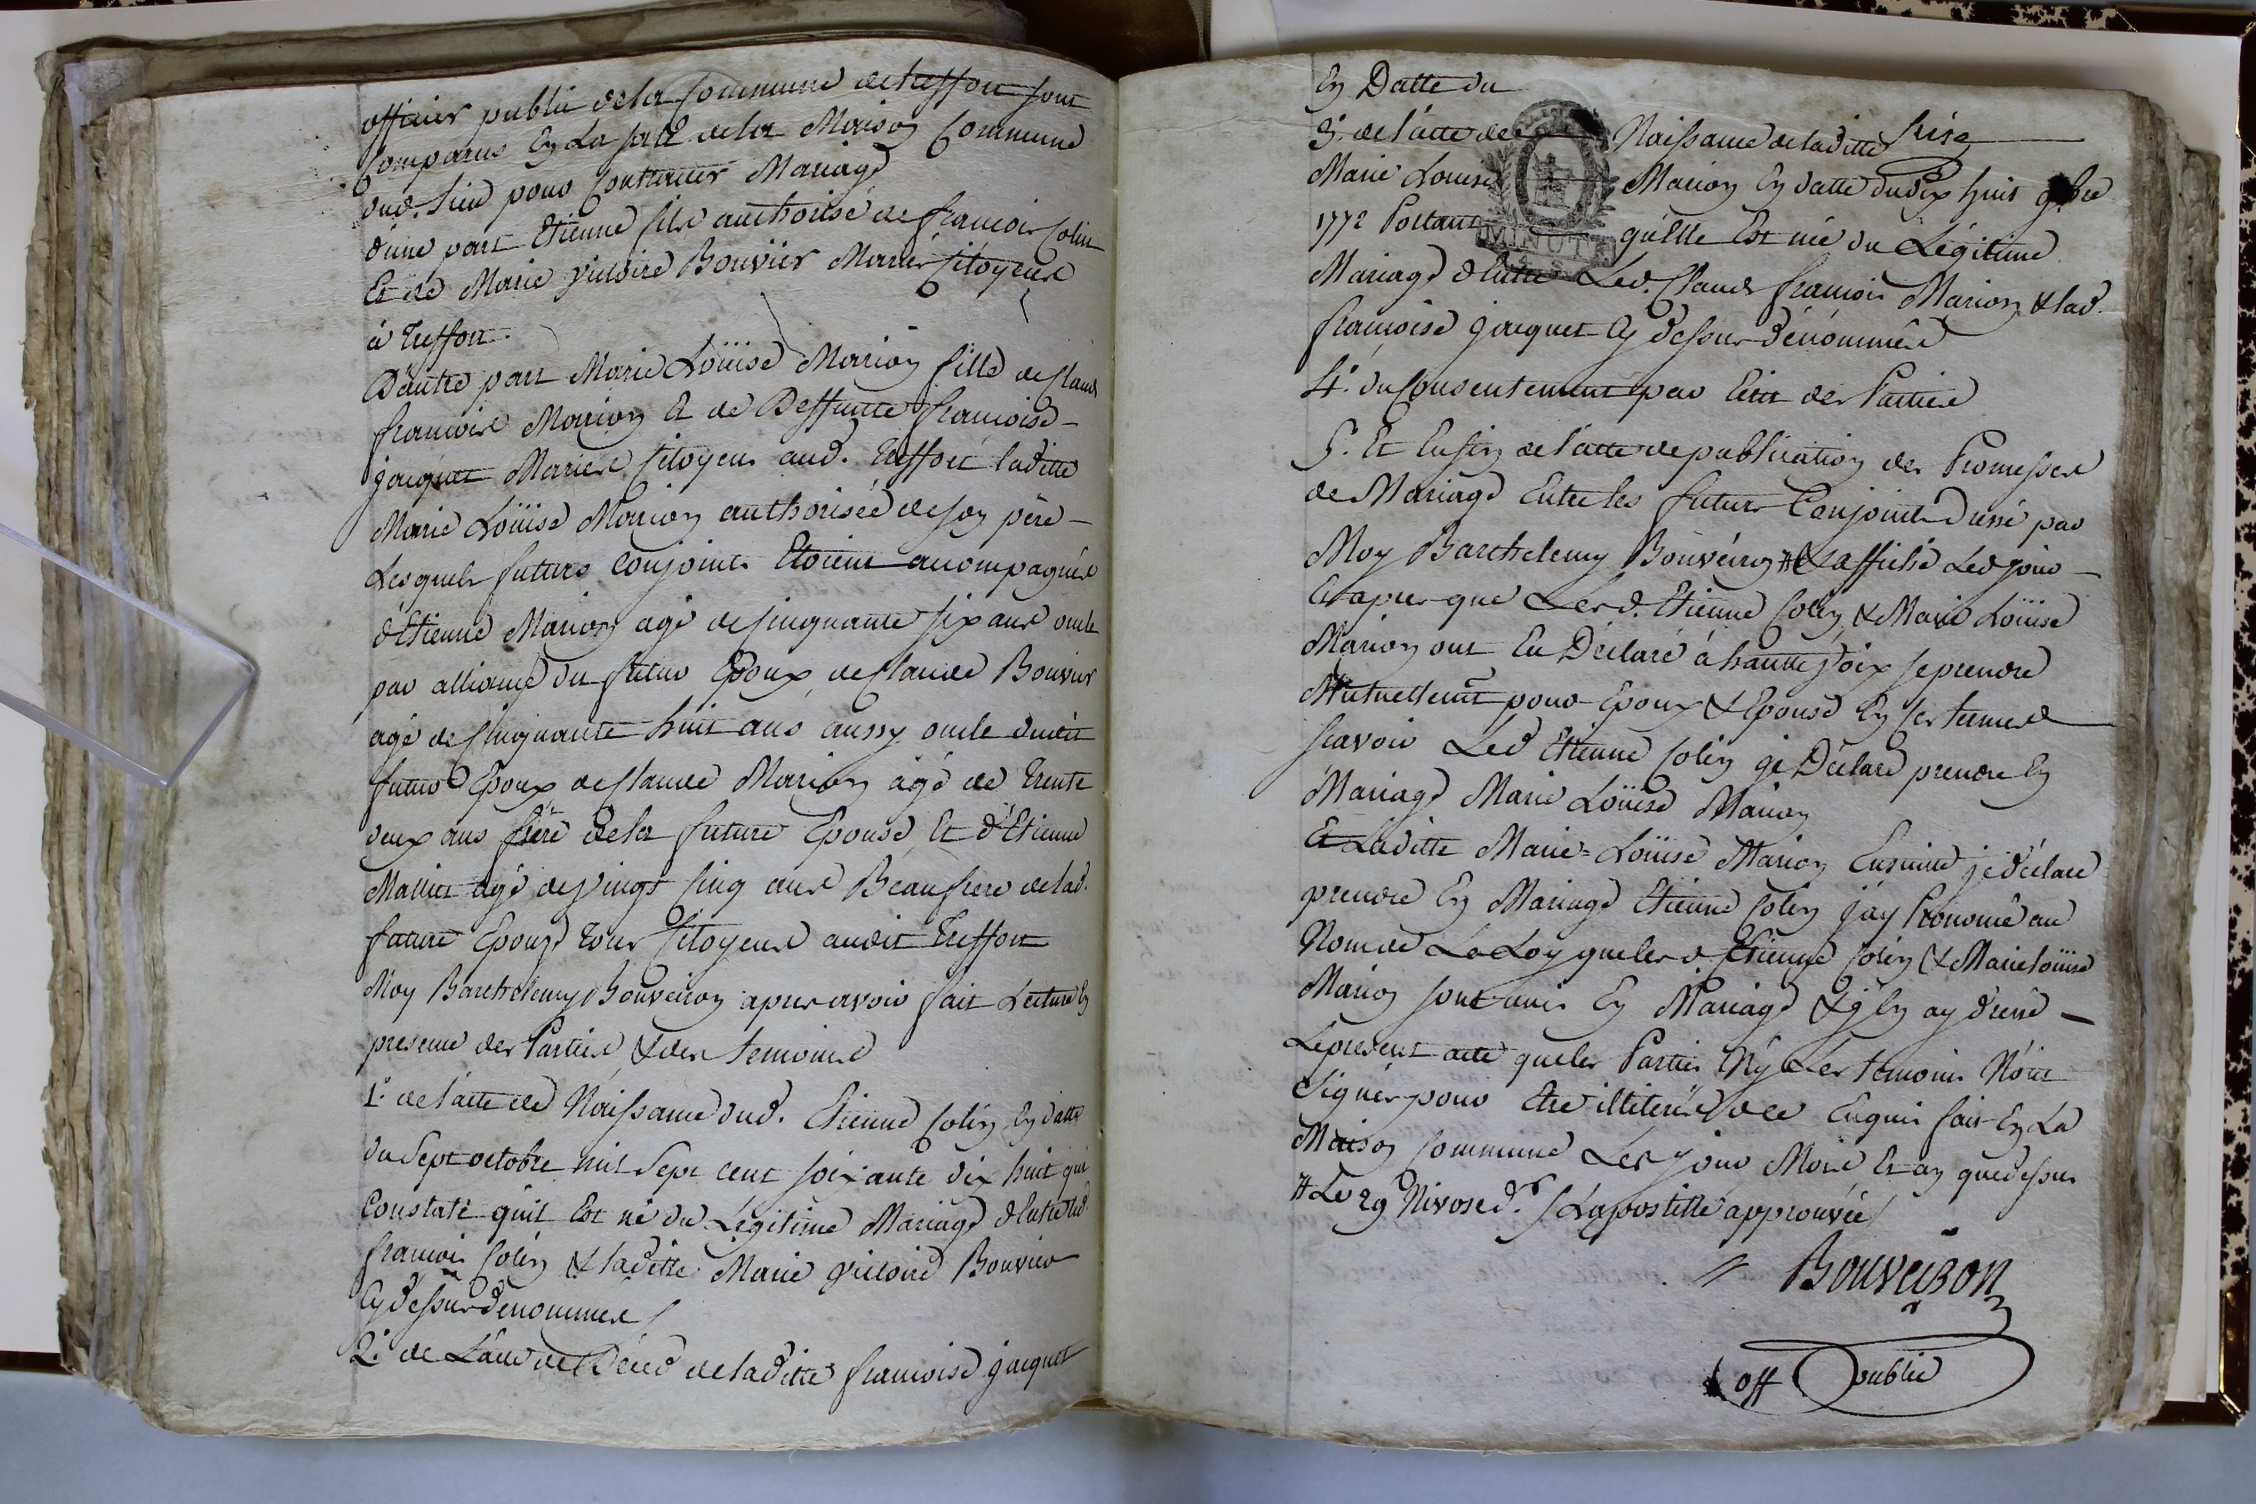 officier public de la Commune de treffort sont
Comparus En La salle de la Maison Commune
dud. lieu pour Contracter Mariage
d'une part Etienne fils authorisé de francois Colin
Et de Marie victoire Bouvier Mariés Citoyens
à treffort.
D'autre part Marie Loüise Marion fille de Claude
francois Marion Et de Deffunte francoise
jacquet Mariés Citoyens aud. treffort laditte
Marie Loüise Marion authorisée de son père
Lesquels futurs Conjoints Etoient acompagnés
d'Etienne Marion agé de cinquante six ans oncle
par alliance du futur Epoux de Claude Bouvier
agé de Cinquante huit ans aussy oncle dudit
futur Epoux de Claude Marion agé de trente
deux ans frère de la future Epouse Et d'Etienne
agé de vingt cinq ans Beaufrere de lad.
future Epouse tous Citoyens audit treffort
Moy Barthelemy Bouveiron apres avoir fait Lecture En
presence des Parties & des temoins
1.° de l'acte de Naissance dud. Etienne Colin En datte
du Sept octobre mil Sept cent soixante dix huit qui
Constate qu'il Est né du Légitime Mariage d'Entre led.
francois Colin & laditte Marie victoire Bouvier
Cy dessus denommés
2.° de L'acte de Décès de laditte francoise jacquet
En Datte du
3.° de l'acte de Naissance de laditte
Marie Louise Marion En datte du dix huit 9.bre
1772 Portant qu'elle Est née du Légitime
MINUTE
Mariage d'Entre Led. Claude francois Marion & lad.
francoise jacquet Cy dessus dénommés
4.° du Consentement par Ecrit des Parties
5.° Et Enfin de l'acte de publication des Promesses
de Mariage Entre les futurs Conjoints dressé par
Moy Barthelemy Bouveiron # & affiché Led jour
Et apres que Lesd. Etienne Colin & Marie Loüise
Marion ont Eu Déclaré à haute voix se prendre
Mutuellemt pour Epoux & Epouse En ces termes
scavoir Led Etienne Colin je Déclare prendre En
Mariage Marie Loüise Marion
Et Laditte Marie=Loüise Marion Ensuite je déclare
prendre En Mariage Etienne Colin j'ay Prononcé au
Nom de La Loy que lesd Etienne Colin & Marie loüise
Marion sont unis En Mariage & j'En ay dressé
Le present acte que les Parties Ny Les temoins N'ont
Signés pour Etre illiterés de ce Enquis fait En La
Maison Commune Les jour Mois Et an que dessus
# Le 29 Nivose d.r / L'apostille approuvée /
Bouveiron
off public